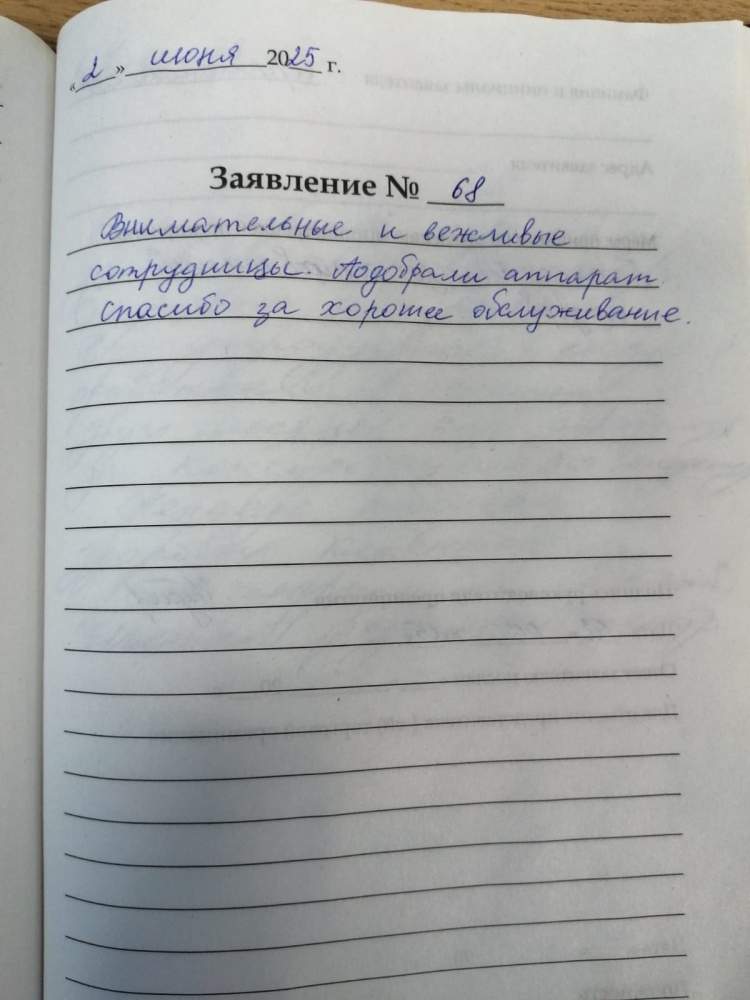 «2» июня 2025 г.
Заявление № 68
Внимательные и вежливые
сотрудницы. Подобрали аппарат.
Спасибо за хорошее обслуживание.